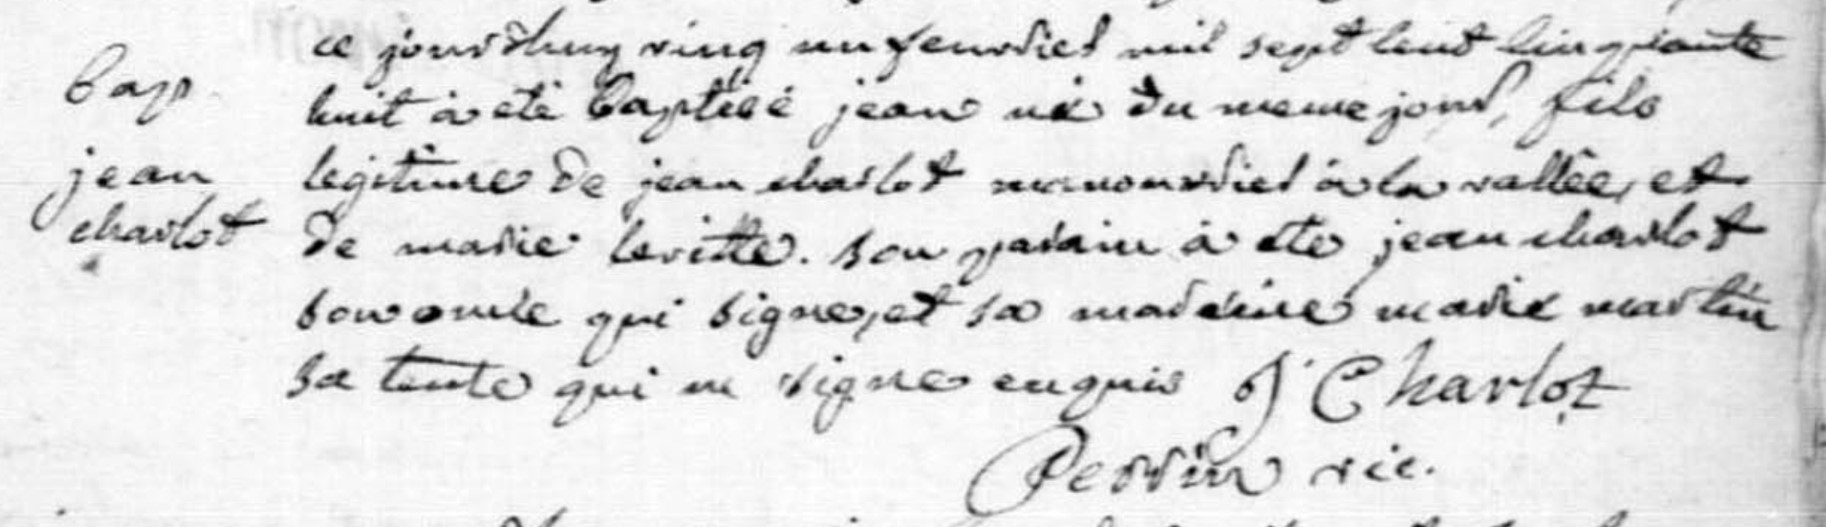 bap
jean
charlot
ce jourdhuy ving un feuvrier mil sept cent cinquante
huit à eté baptisé jean né du meme jour, fils
legitime de jean charlot manouvrier à la vallée, et
de marie levitte. son parain à ete jean charlot
son oncle qui signe, et sa maraine marie martin
sa tente qui ne signe enquis J Charlot
Perrin vic.